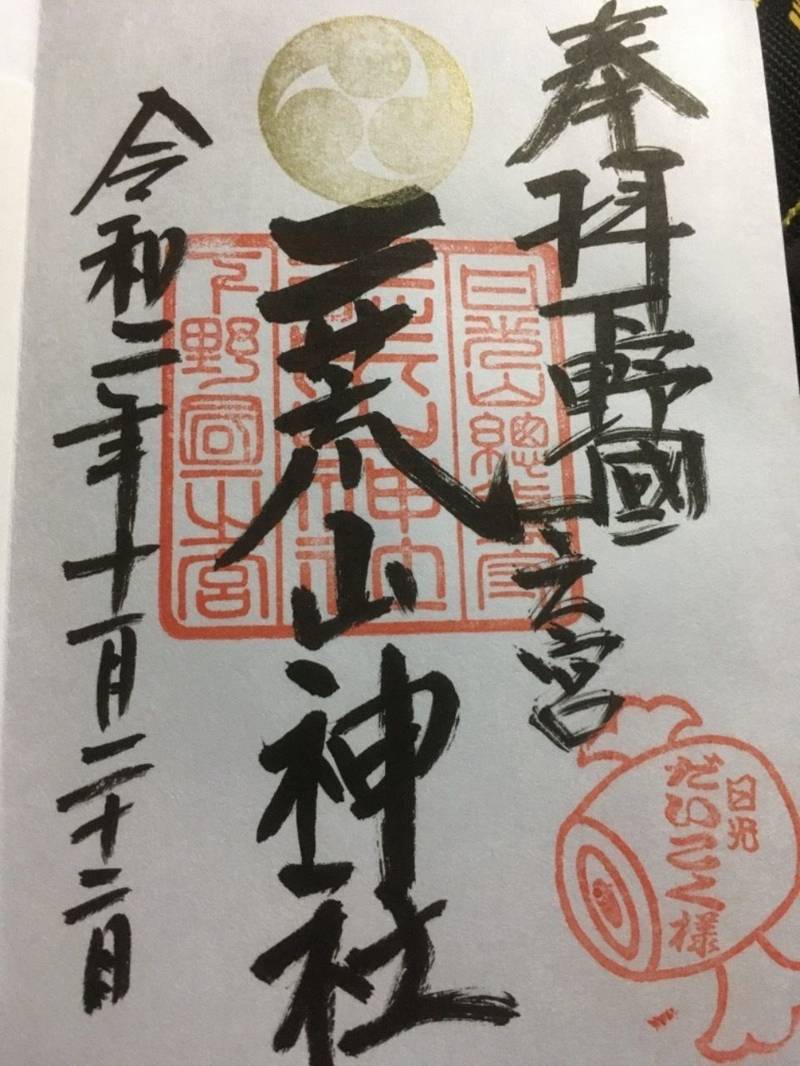 奉拝 下野國一之宮
二荒山神社
令和二年十一月二十二日
日光山總
二荒山神社
下野國一之宮
日光
だいこく様